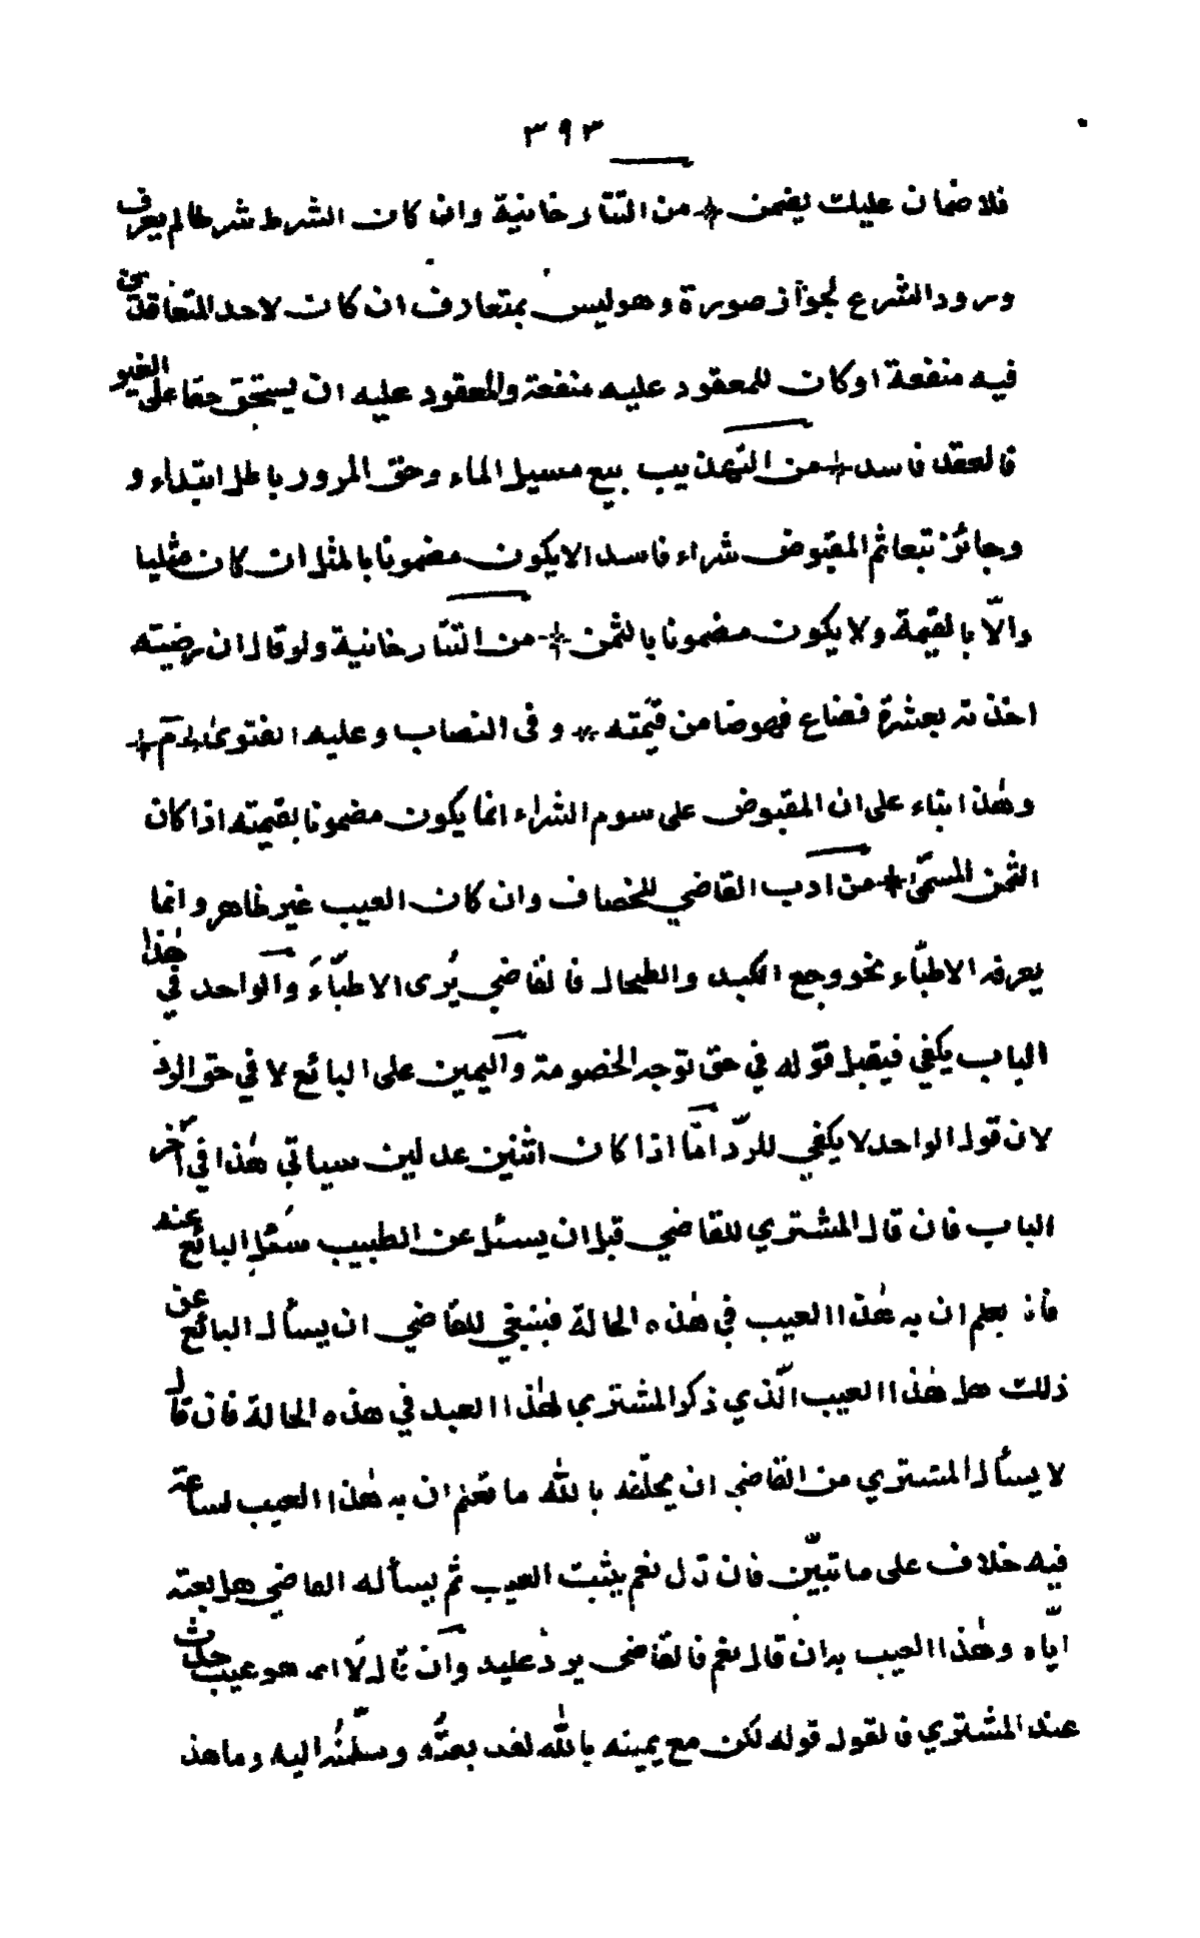 ٣٩٣
فلا ضمان عليك يضمن من التتارخانية وان كان الشرط شرطا لم يعرف
ورود الشرع لجوازه صورة وهو ليس بمتعارف ان كان لاحد المتعاقدين
فيه منفعة او كان للمعقود عليه منفعة والمعقود عليه ان يستحق حقا على الغير
فالعقد فاسد من التهذيب بيع مسيل الماء وحق المرور باطل ابتداء و
وجائز تبعا ثم المقبوض شراء فاسد الا يكون مضمونا بالمثل ان كان مثليا
والّا بالقيمة ولا يكون مضمونا بالثمن من التتارخانية ولو قال ان رضيته
اخذته بعشرة فضاع فهو ضامن قيمته وفى النصاب وعليه الفتوى
وهذا بناء على ان المقبوض على سوم الشراء انما يكون مضمونا بقيمته اذا كان
الثمن المسمّى من ادب القاضي للخصاف وان كان العيب غير ظاهر وانما
يعرفه الاطبّاء نحو وجع الكبد والطحال فالقاضي يُرى الاطبّاءَ والواحد في هذا
الباب يكفي فيقبل قوله في حق توجه الخصومة واليمين على البائع لا في حق الرد
لان قول الواحد لا يكفي للردّ امّا اذا كان اثنين عدلين سياتي هذا في آخر
الباب فان قال المشتري للقاضي قبل ان يسئل عن الطبيب سئل البائع عنه
فانه يعلم ان به هذا العيب في هذه الحالة فينبغي للقاضي ان يسأل البائع عن
ذلك هل هذا العيب الّذي ذكر المشتري لهذا العبد في هذه الحالة فان قال
لا يسأل المشتري من القاضي ان يحلّفه بالله ما تعلم ان به هذا العيب لساعته
فيه خلاف على ما تبيّن فان قال نعم يثبت العيب ثم يسأله القاضي هل بعته
ايّاه وهذا العيب به ان قال نعم فالقاضي يرد عليه وان قال لا انه هو عيب حدث
عند المشتري فالقول قوله لكن مع يمينه بالله لقد بعتُه وسلّمتُه اليه وما هذ